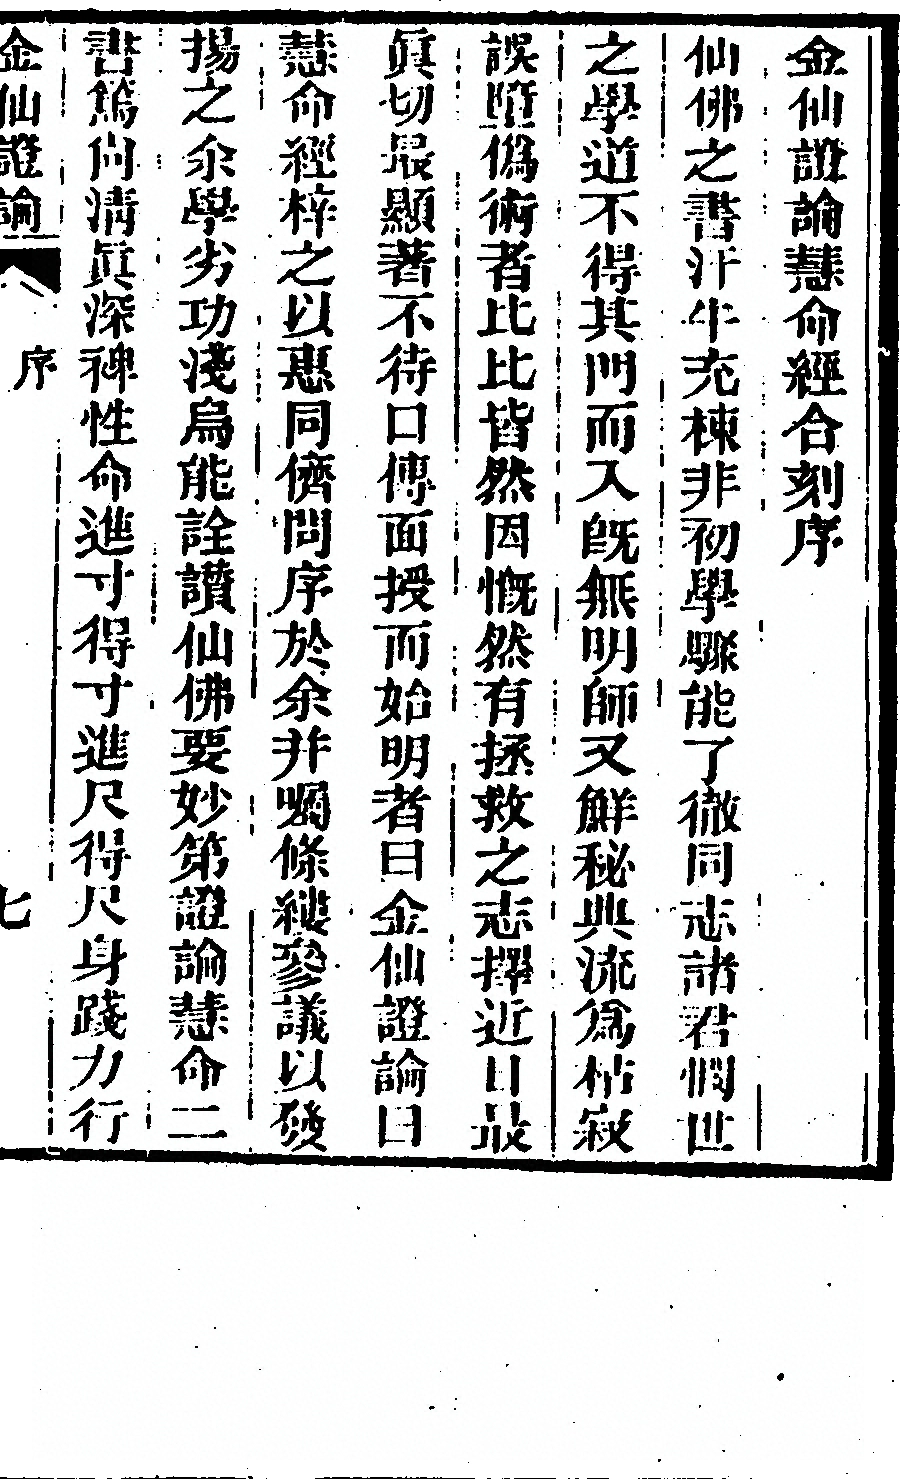 金仙證論慧命經合刻序
仙佛之書汗牛充棟非初學驟能了徹同志諸君憫世
之學道不得其門而入旣無明師又鮮秘典流爲枯寂
誤墮僞術者比比皆然因慨然有拯救之志擇近日最
眞切最顯著不待口傳面授而始明者曰金仙證論曰
慧命經梓之以惠同儕問序於余幷囑條縷參議以發
揚之余學劣功淺烏能詮讚仙佛要妙第證論慧命二
書篤尙淸眞深裨性命進寸得寸進尺得尺身踐力行
金仙證論
序
七